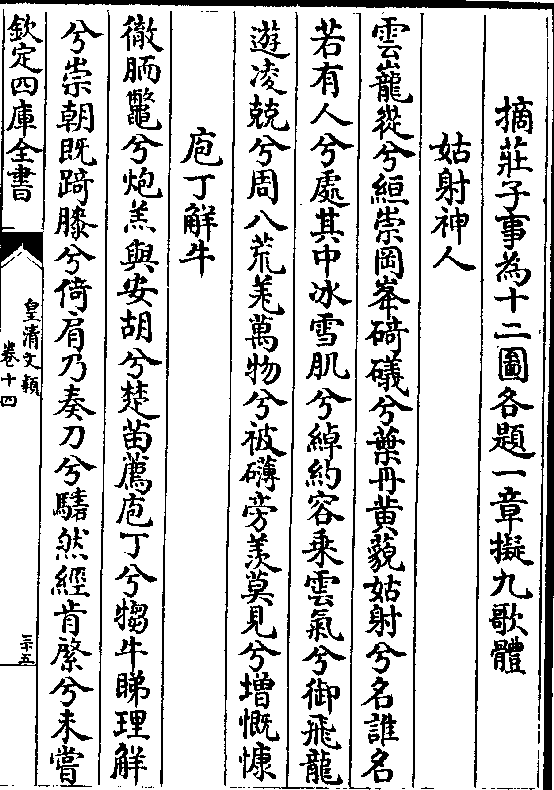 摘莊子事為十二圖各題一章擬九歌體
姑射神人
雲巃嵸兮絙崇岡峯碕礒兮葉丹黄藐姑射兮名誰名
若有人兮處其中冰雪肌兮綽約容乗雲氣兮御飛龍
遊凌兢兮周八荒羌萬物兮被礴旁羡莫見兮増慨慷
庖丁解牛
徹胹鼈兮炮羔與安胡兮楚苗薦庖丁兮犓牛睇理解
兮崇朝既踦膝兮倚肩乃奏刀兮騞然經肯綮兮未嘗
欽定四庫全書
皇清文穎
卷十四
三十五